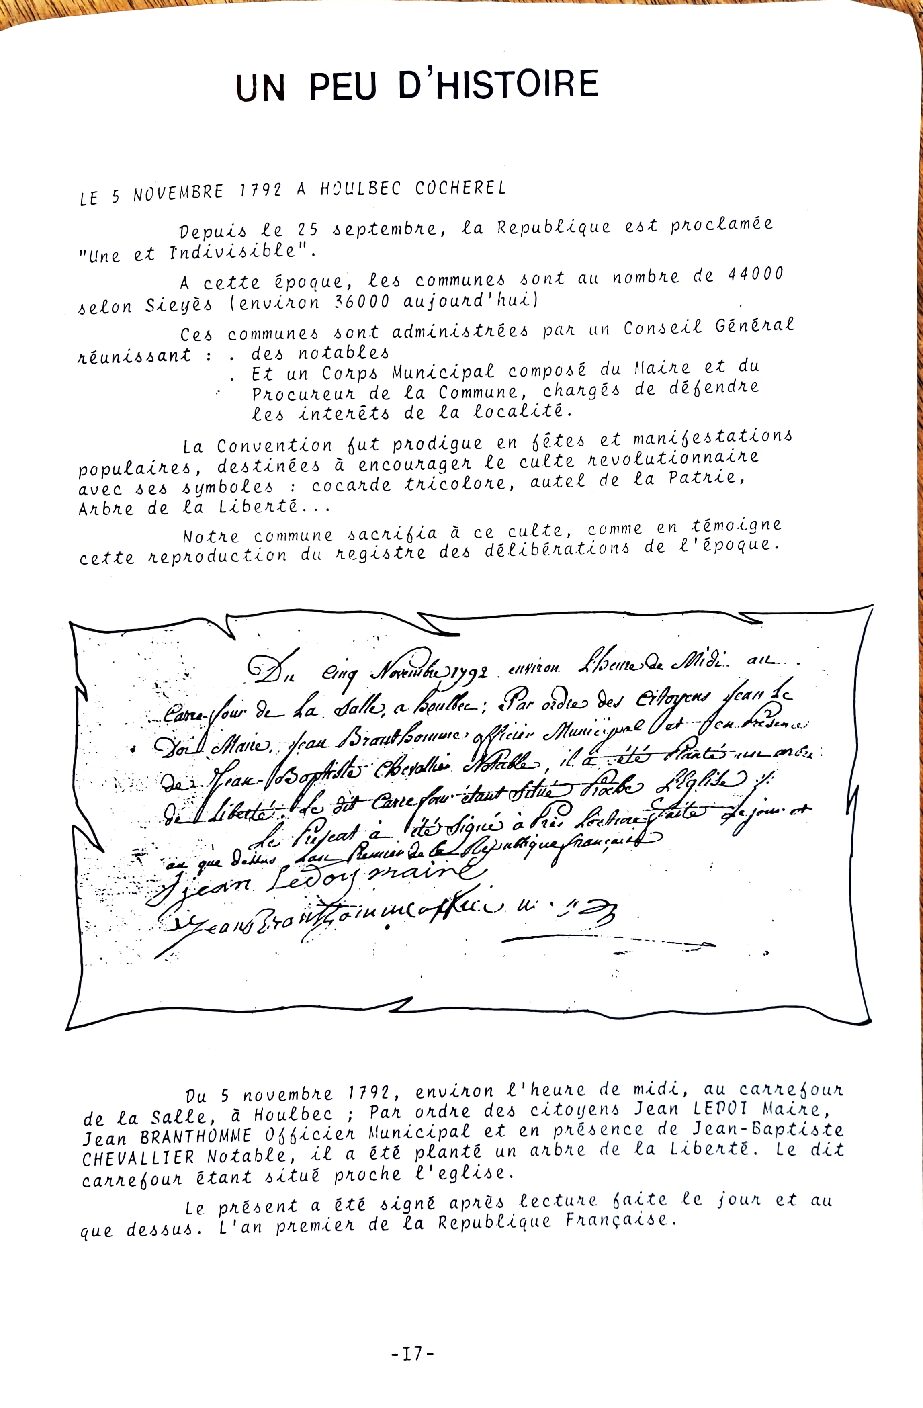 UN PEU D'HISTOIRE
LE 5 NOVEMBRE 1792 A HOULBEC COCHEREL
Depuis le 25 septembre, la Republique est proclamée
"Une et Indivisible".
A cette époque, les communes sont au nombre de 44000
selon Sieyès (environ 36000 aujourd'hui)
Ces communes sont administrées par un Conseil Général
réunissant : . des notables
. Et un Corps Municipal composé du Maire et du
Procureur de la Commune, chargés de défendre
les interêts de la localité.
La Convention fut prodigue en fêtes et manifestations
populaires, destinées à encourager le culte revolutionnaire
avec ses symboles : cocarde tricolore, autel de la Patrie,
Arbre de la Liberté...
Notre commune sacrifia à ce culte, comme en témoigne
cette reproduction du registre des délibérations de l'époque.
Du Cinq Novembre 1792 environ L'heure de Midi au
Carrefour de La Salle, a houlbec; Par ordre des Citoyens Jean Le
Doi Maire, Jean Branthomme officier Municipal et en Présence
de Jean-Baptiste Chevallier Notable, il a été Planté un arbre
de Liberté. Le dit Carrefour étant Situé Proche L'Eglise
Le Présent à été Signé à Près Lecture faite Le jour et
an que dessus Lan Premier de la République française
Jean Ledoy maire
Jean Branthomme officie m.
Du 5 novembre 1792, environ l'heure de midi, au carrefour
de la Salle, à Houlbec ; Par ordre des citoyens Jean LEDOI Maire,
Jean BRANTHOMME Officier Municipal et en présence de Jean-Baptiste
CHEVALLIER Notable, il a été planté un arbre de la Liberté. Le dit
carrefour étant situé proche l'eglise.
Le présent a été signé après lecture faite le jour et au
que dessus. L'an premier de la Republique Française.
-I7-